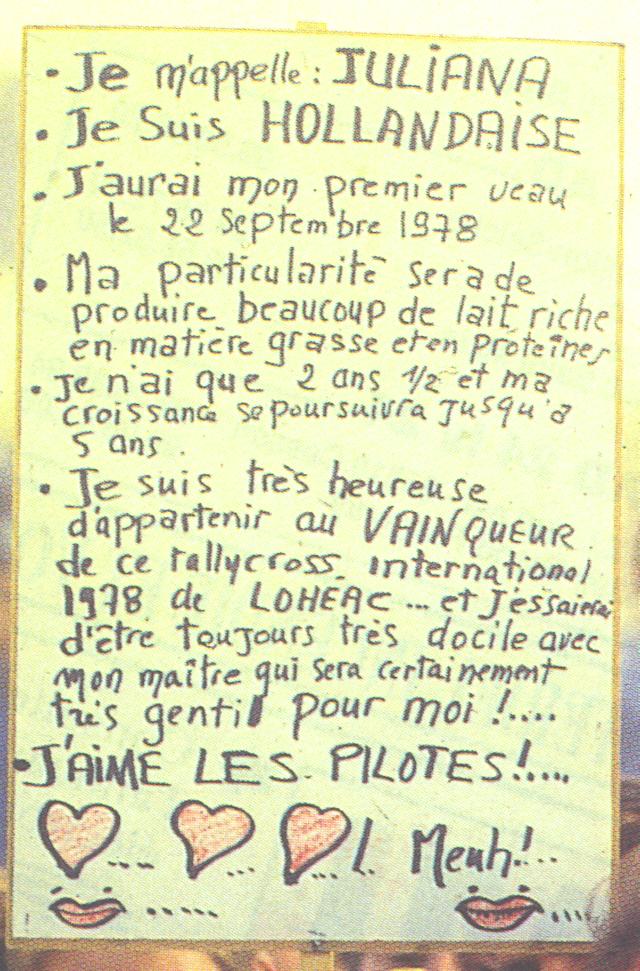 • Je m'appelle : JULiANA
• Je Suis HOLLANDAiSE
• J'aurai mon premier veau
le 22 Septembre 1978
• Ma particularité sera de
produire beaucoup de lait riche
en matière grasse et en protéines
• Je n'ai que 2 ans 1/2 et ma
croissance se poursuivra jusqu'a
5 ans.
• Je suis très heureuse
d'appartenir au VAINQUEUR
de ce rallycross international
1978 de LOHEAC ... et J'essaierai
d'être toujours très docile avec
mon maître qui sera certainement
très gentil pour moi !....
• J'AiME LES PILOTES!....
.... ... ...! Meuh!...
..... ....